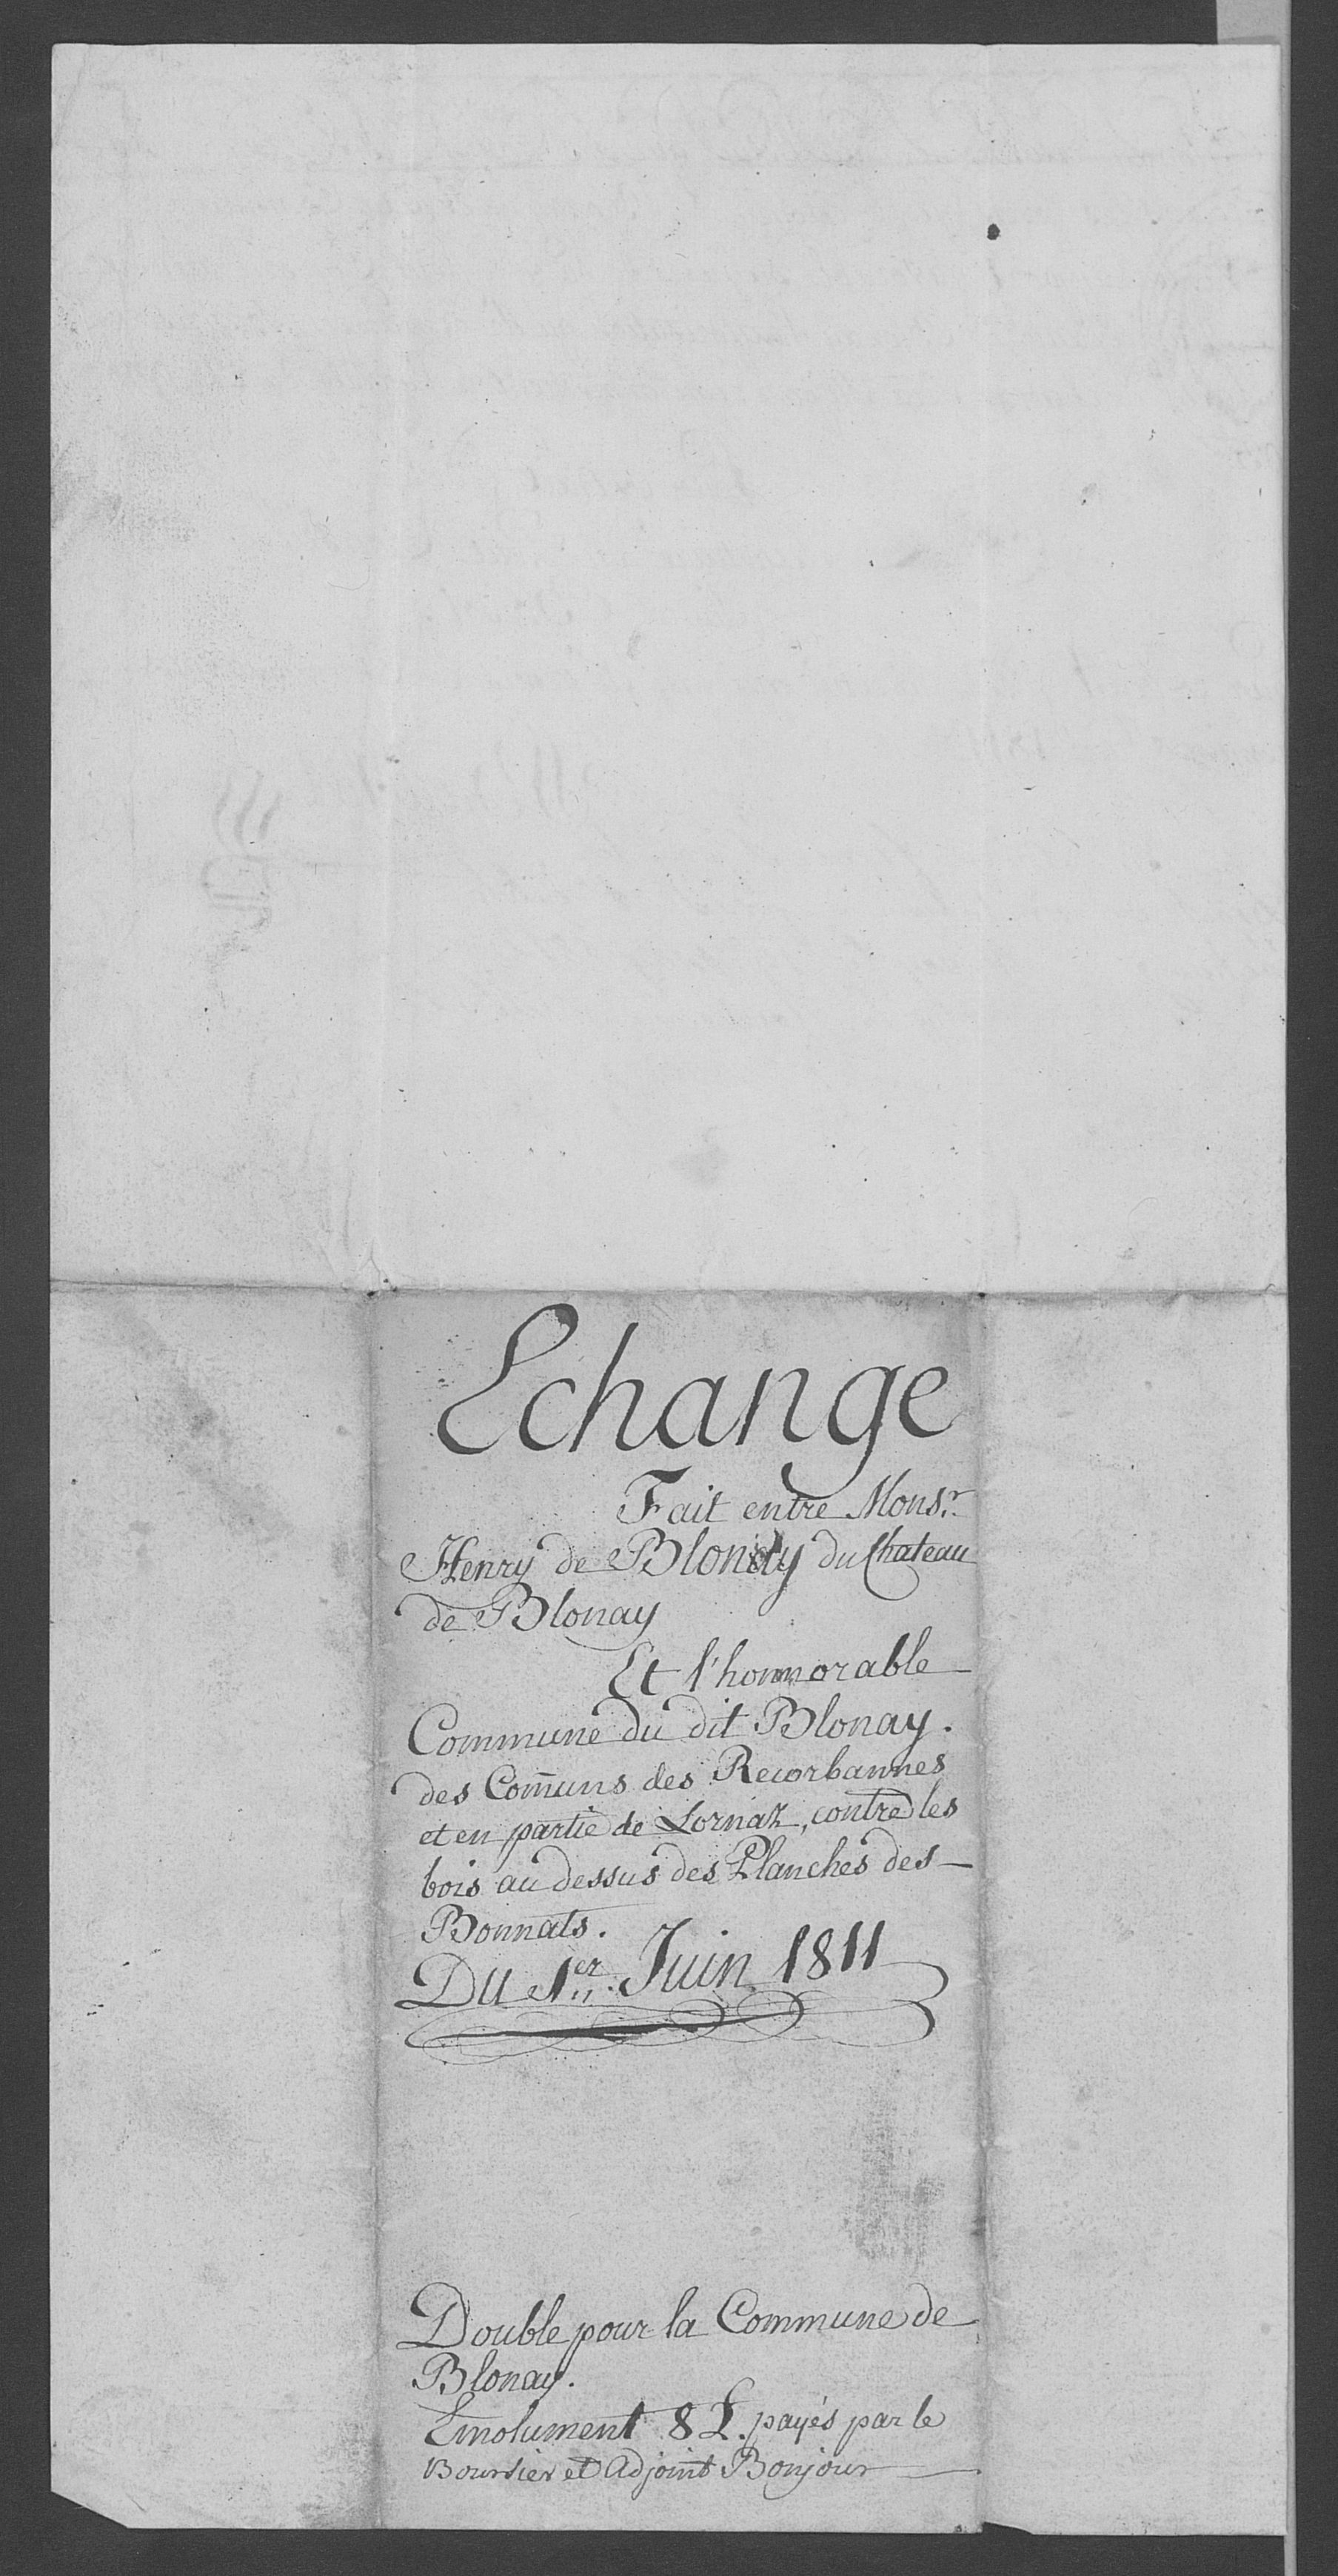 Echange
Fait entre Monsr.
Henry de Blonay du Chateau
de Blonay
Et l'honnorable
Commune du dit Blonay.
des Com̄uns des Recorbannes
et en partie de Lornaz, contre les
bois au dessus des Planches des
Bonnats.
Du 1er. Juin 1811
Double pour la Commune de
Blonay.
Emolument 8 L. payés par le
Boursier et Adjoint Bonjour